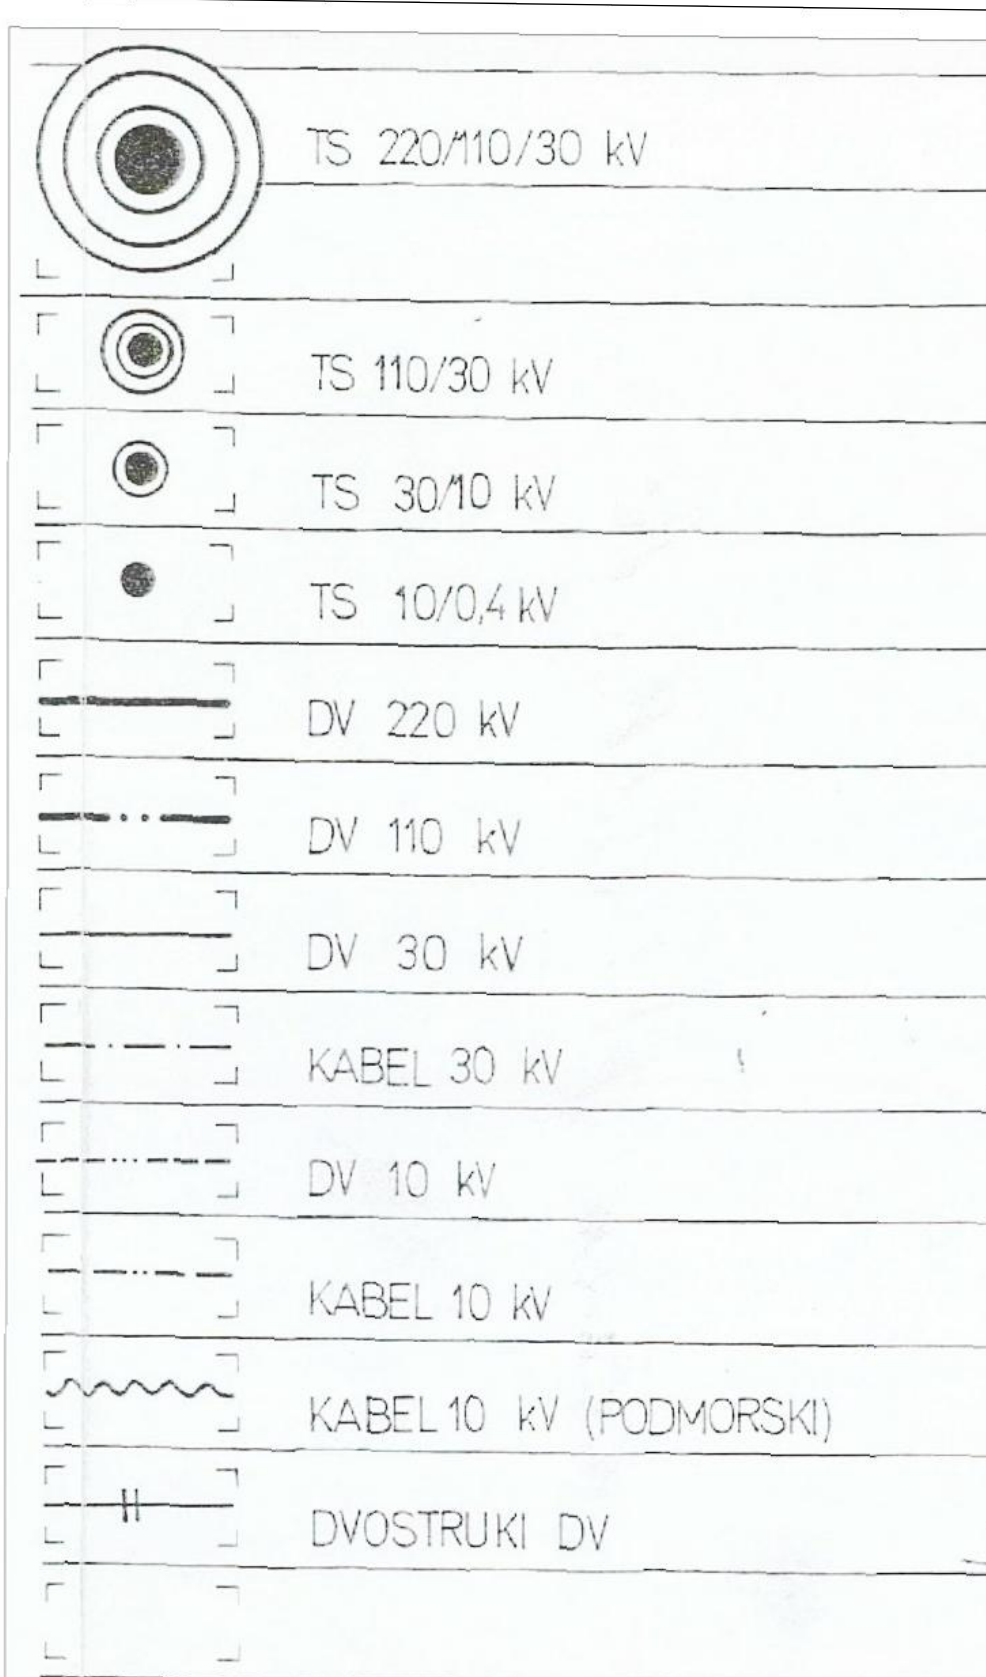 TS 220/110/30 kV
TS 110/30 kV
TS 30/10 kV
TS 10/0,4 kV
DV 220 kV
DV 110 kV
DV 30 kV
KABEL 30 kV
DV 10 kV
KABEL 10 kV
KABEL 10 kV (PODMORSKI)
DVOSTRUKI DV